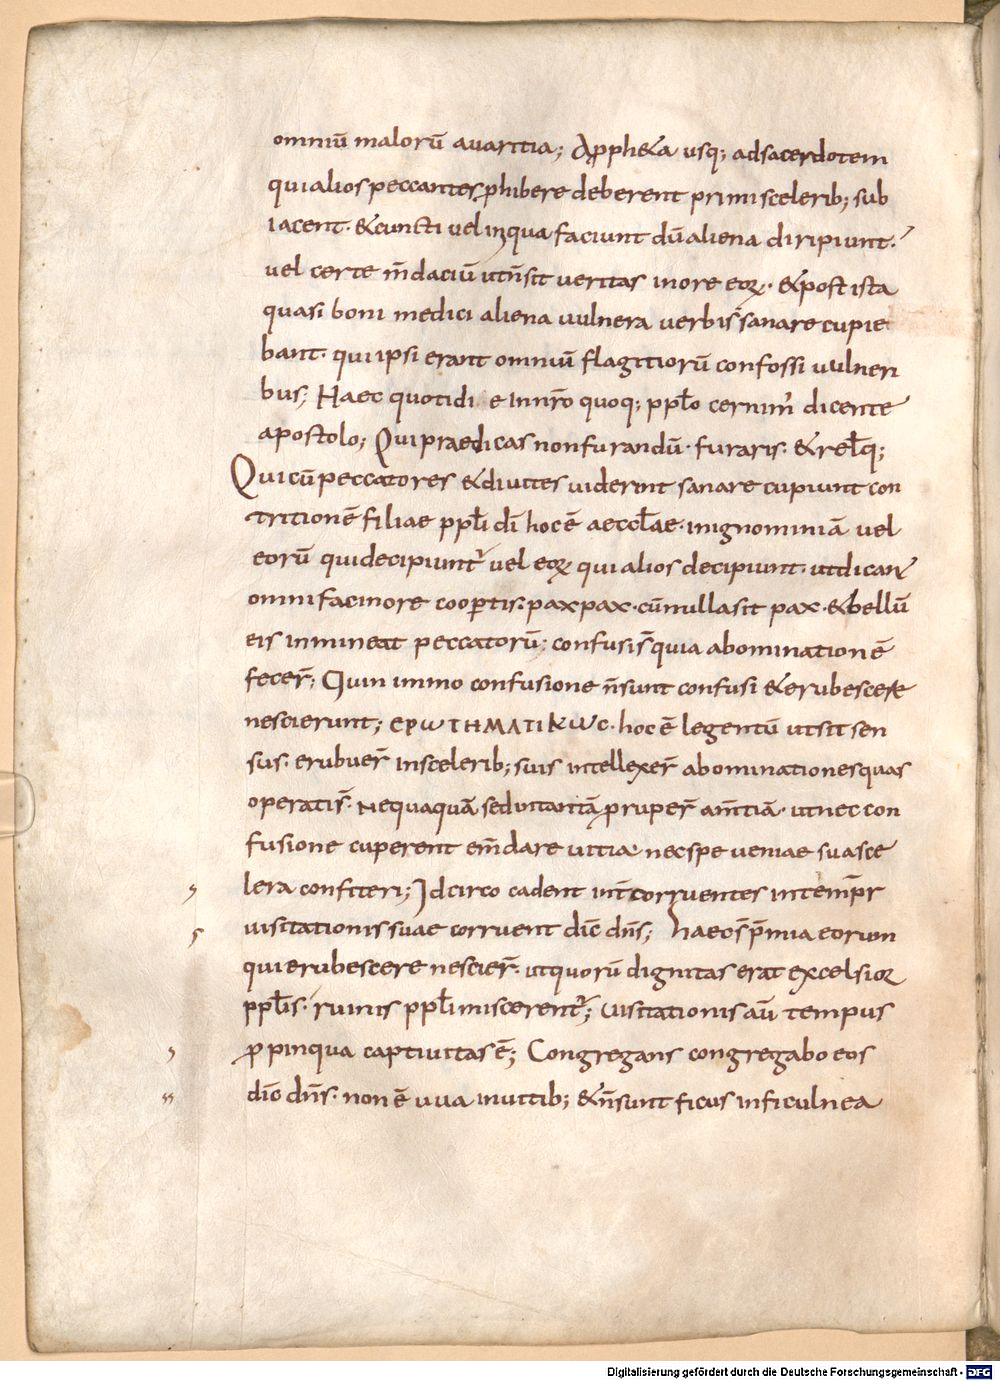 omniū malorū avaritia; Aprophεta usq; adsacerdotem
quialiospeccantes ꝓhibere deberent primi sceleribꝫ sub
iacent· &cuncti vel iniqua faciunt dūaliena diripiunt·
vel certe m̄daciū utn̄sit veritas inore eoꝝ· &post ista
quasi boni medici aliena vulnera verbis sanare cupie
bant· quiipsi erant omniū flagitiorū confossi vulneri
bus; Haec quotidi e Innr̄o quoq; ppl̄o cernim' dicente
apostolo; Qui praedicas nonfurandū· furaris· &rel̄q;
Quicū peccatores &divites viderint sanare cupiunt con
tritionē filiae ppl̄i dī hocē aeccl̄ae· inignominiā vel
eorū quidecipiunt᷑ vel eoꝝ qui alios decipiunt· utdicant᷑
omni facinore coop̄tis· pax pax· cūnullasit pax· &bellū
eis inmineat peccatorū; confusis̄ quia abominationē
fecer̄; Quin immo confusione n̄sunt confusi &erubescere
nescierunt; ЄΡѠΤΗΜΑΤΙΚѠC· hocē legentū utsit sen
sus· erubuer̄ insceleribꝫ suis intellexer̄ abominationesquas
operatis̄· Nequaquā seductantā ꝓruper̄ am̄tiā· utnec con
fusione cuperent em̄dare vitia necspe veniae suasce
lera confiteri; Idcirco cadent int̄ corruentes intemp̄r
visitationis suae corruent dic̄ dn̄s; haecs̄ p̄mia eorum
quierubescere nescier̄· utquorū dignitas erat excelsior
ppl̄is· ruinis ppl̄i miscerent᷑; Visitationis aū tempus
ꝓpinqua captivitasē; Congregans congregabo eos
dic̄ dn̄s· non ē uva invitibꝫ &n̄sunt ficus inficulnea
Digitalisierung gefördert durch die Deutsche Forschungsgemeinschaft - DFG